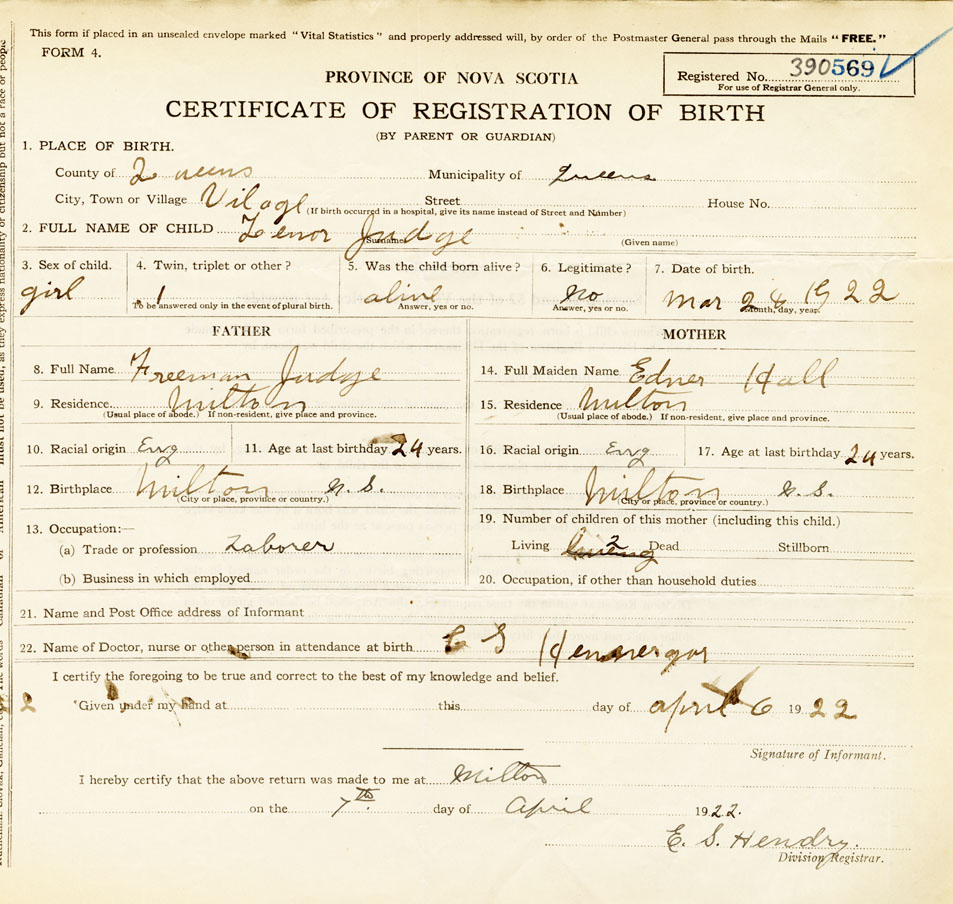 This form if placed in an unsealed envelope marked "Vital Statistics" and properly addressed will, by order of the Postmaster General pass through the Mails "FREE."
FORM 4.
Registered No. 390569
For use of Registrar General only.
PROVINCE OF NOVA SCOTIA
CERTIFICATE OF REGISTRATION OF BIRTH
(BY PARENT OR GUARDIAN)
1. PLACE OF BIRTH.
County of Queens Municipality of Queens
City, Town or Village Vilage Street House No.
(If birth occurred in a hospital, give its name instead of Street and Number)
2. FULL NAME OF CHILD Lenor Judge
Surname (Given name)
3. Sex of child. 4. Twin, triplet or other? 5. Was the child born alive? 6. Legitimate? 7. Date of birth.
girl 1 alive No Mar 24 1922
To be answered only in the event of plural birth. Answer, yes or no. Answer, yes or no. Month, day, year.
FATHER MOTHER
8. Full Name Freeman Judge 14. Full Maiden Name Edner Hall
9. Residence. Milton 15. Residence Milton
(Usual place of abode.) If non-resident, give place and province. (Usual place of abode.) If non-resident, give place and province.
10. Racial origin Eng 11. Age at last birthday 24 years. 16. Racial origin Eng 17. Age at last birthday 24 years.
12. Birthplace Milton N.S. 18. Birthplace Milton N.S.
(City or place, province or country.) (City or place, province or country.)
13. Occupation:— 19. Number of children of this mother (including this child.)
(a) Trade or profession Laborer Living 2 Dead Stillborn
(b) Business in which employed 20. Occupation, if other than household duties
21. Name and Post Office address of Informant
22. Name of Doctor, nurse or other person in attendance at birth
I certify the foregoing to be true and correct to the best of my knowledge and belief.
Given under my hand at this day of april 6 1922
Signature of Informant.
I hereby certify that the above return was made to me at Milton
on the 7th day of April 1922.
E. S. Hendry.
Division Registrar.